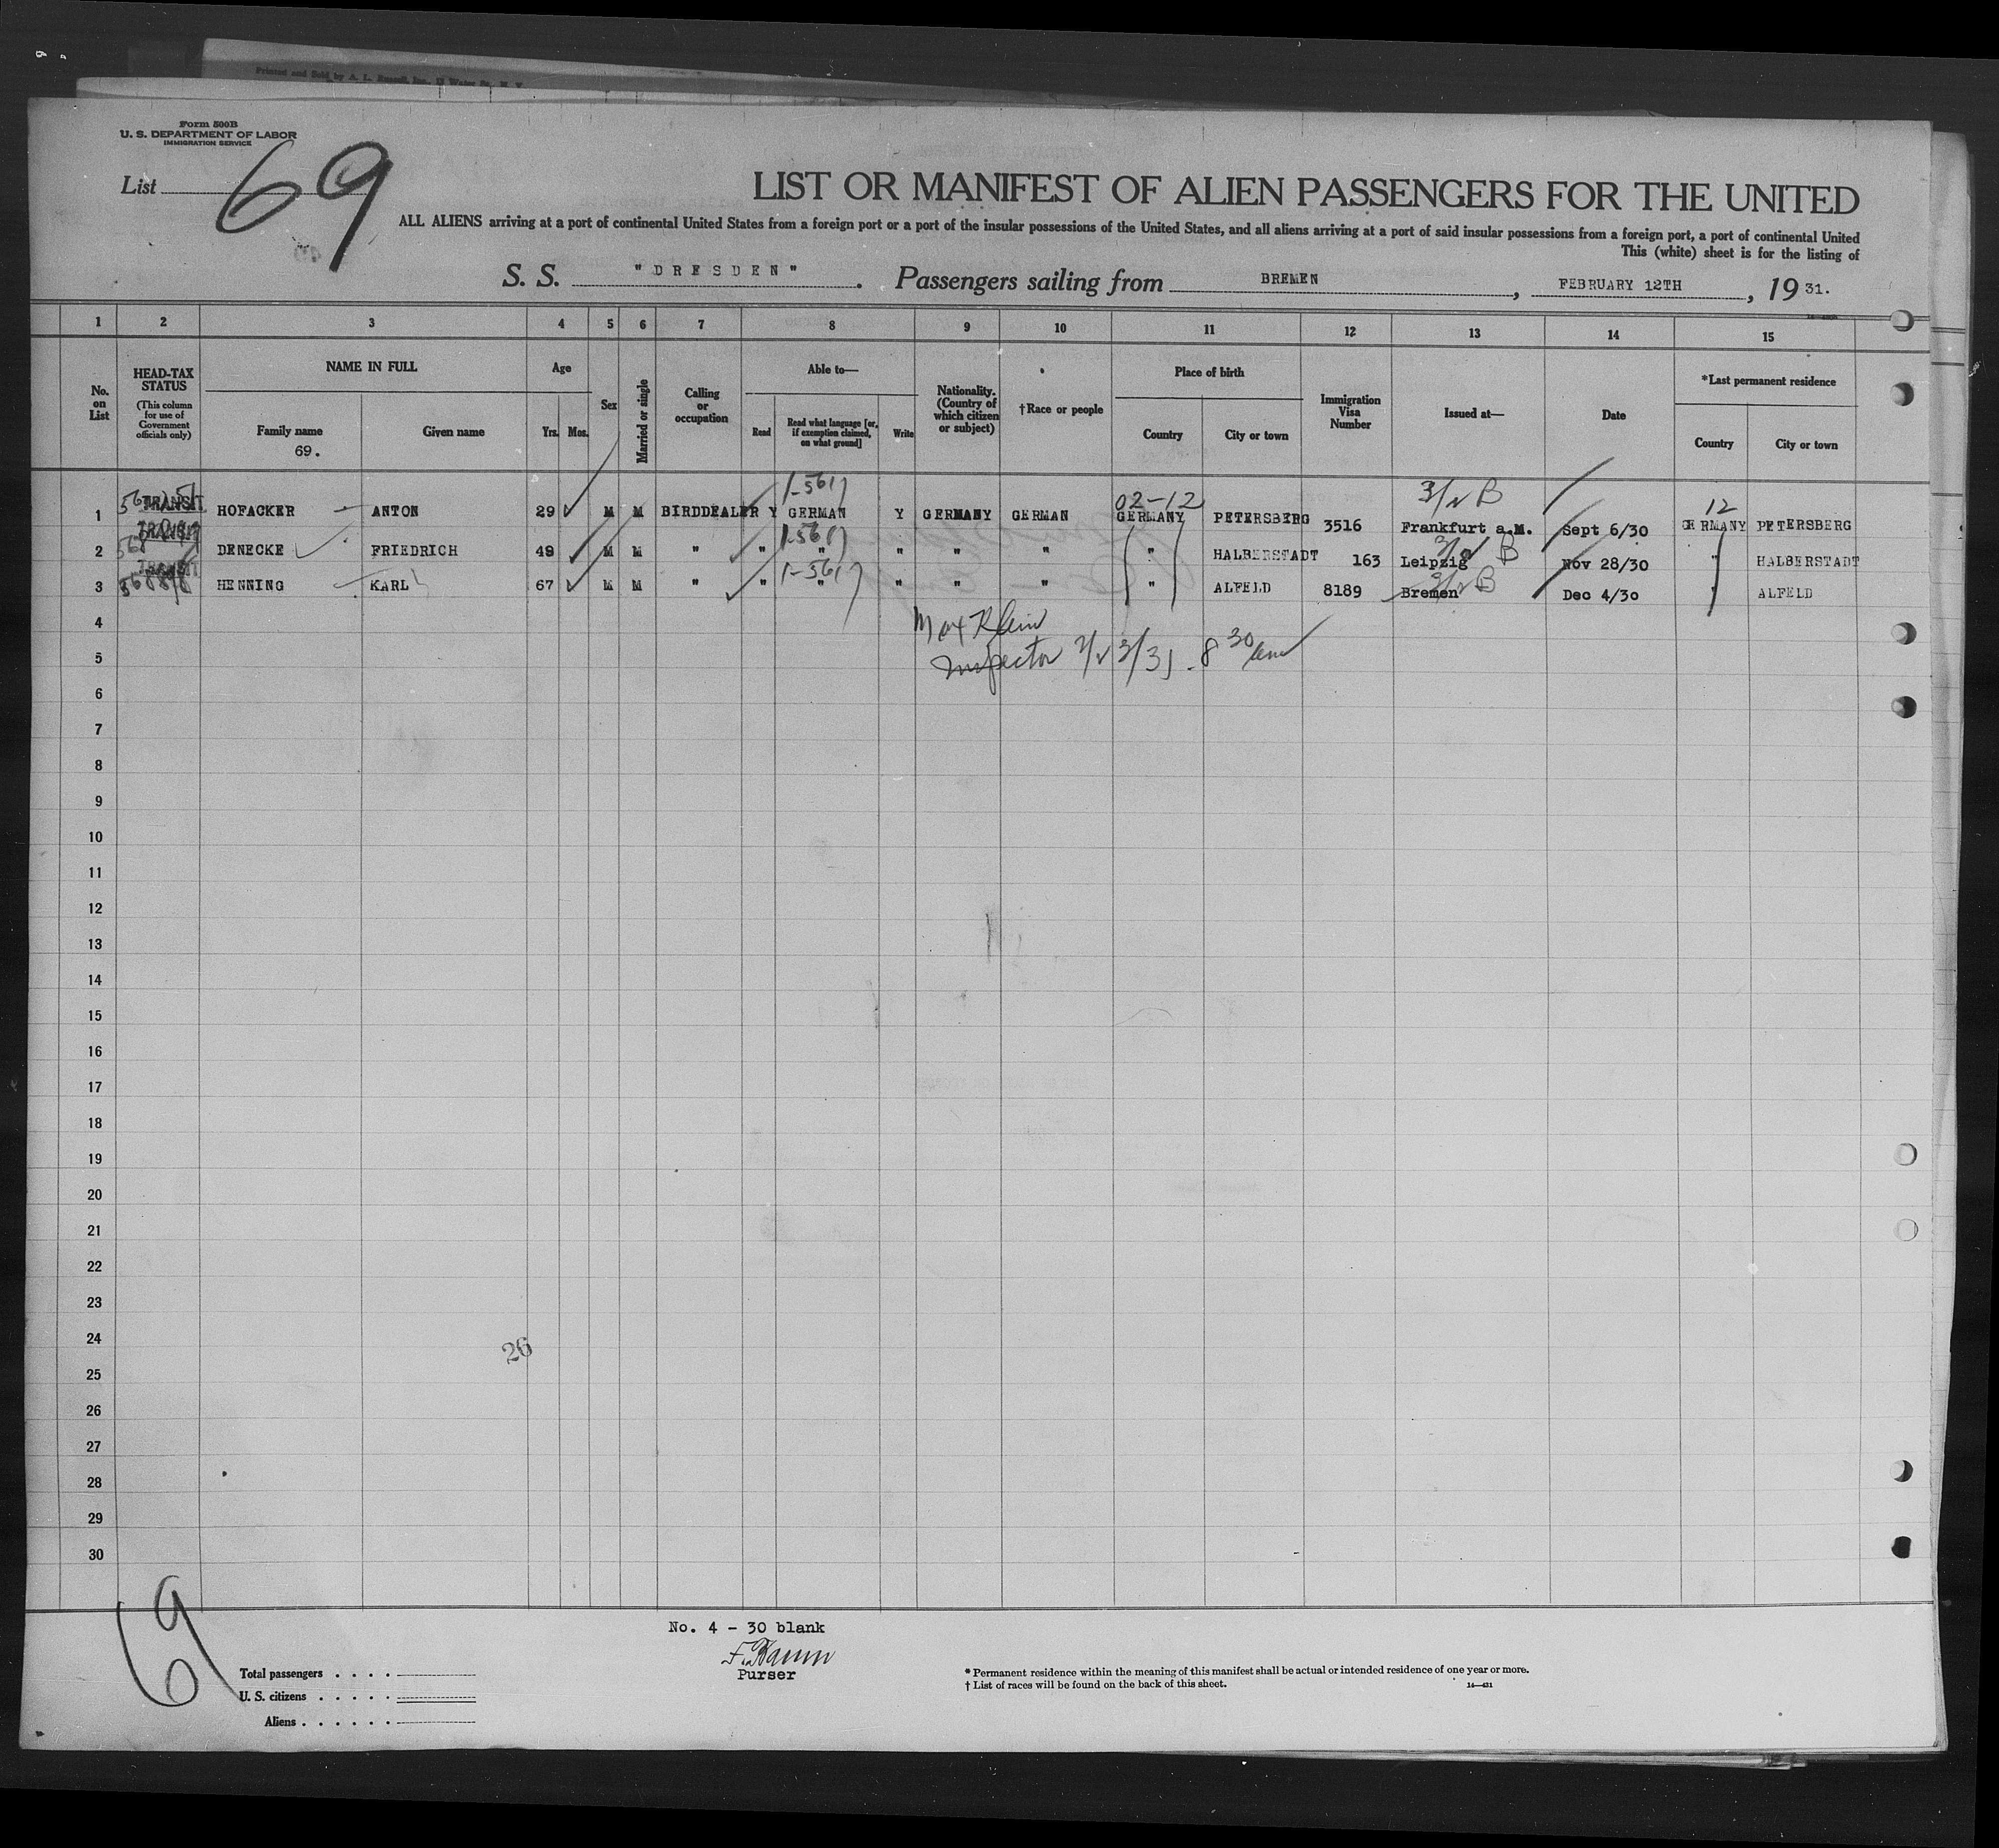 Printed and Sold by A. L. Russell, Inc., 12 Water St., N. Y.
Form 500B
U. S. DEPARTMENT OF LABOR
IMMIGRATION SERVICE
List 69
LIST OR MANIFEST OF ALIEN PASSENGERS FOR THE UNITED
ALL ALIENS arriving at a port of continental United States from a foreign port or a port of the insular possessions of the United States, and all aliens arriving at a port of said insular possessions from a foreign port, a port of continental United
This (white) sheet is for the listing of
S. S. "DRESDEN". Passengers sailing from BREMEN, FEBRUARY 12TH, 19 31.
1 2 3 4 5 6 7 8 9 10 11 12 13 14 15
No. on List
HEAD-TAX STATUS
(This column for use of Government officials only)
NAME IN FULL
Family name
69.
Given name
Age
Yrs. Mos.
Sex
Married or single
Calling or occupation
Able to—
Read
Read what language [or, if exemption claimed, on what ground]
Write
Nationality. (Country of which citizen or subject)
†Race or people
Place of birth
Country
City or town
Immigration Visa Number
Issued at—
Date
*Last permanent residence
Country
City or town
02-12
12
1 TRANSIT HOFACKER ANTON 29 M M BIRDDEALER Y GERMAN Y GERMANY GERMAN GERMANY PETERSBERG 3516 Frankfurt a.M. Sept 6/30 GERMANY PETERSBERG
2 TRANSIT DENECKE FRIEDRICH 49 M M " " " " " " " HALBERSTADT 163 Leipzig Nov 28/30 " HALBERSTADT
3 TRANSIT HENNING KARL 67 M M " " " " " " " ALFELD 8189 Bremen Dec 4/30 " ALFELD
4
Max Klein
5
Inspector
6
7
8
9
10
11
12
13
14
15
16
17
18
19
20
21
22
23
24
26
25
26
27
28
29
30
69
No. 4 - 30 blank
Purser
Total passengers . . . .
U. S. citizens . . . . .
Aliens . . . . . .
* Permanent residence within the meaning of this manifest shall be actual or intended residence of one year or more.
† List of races will be found on the back of this sheet.
14—431